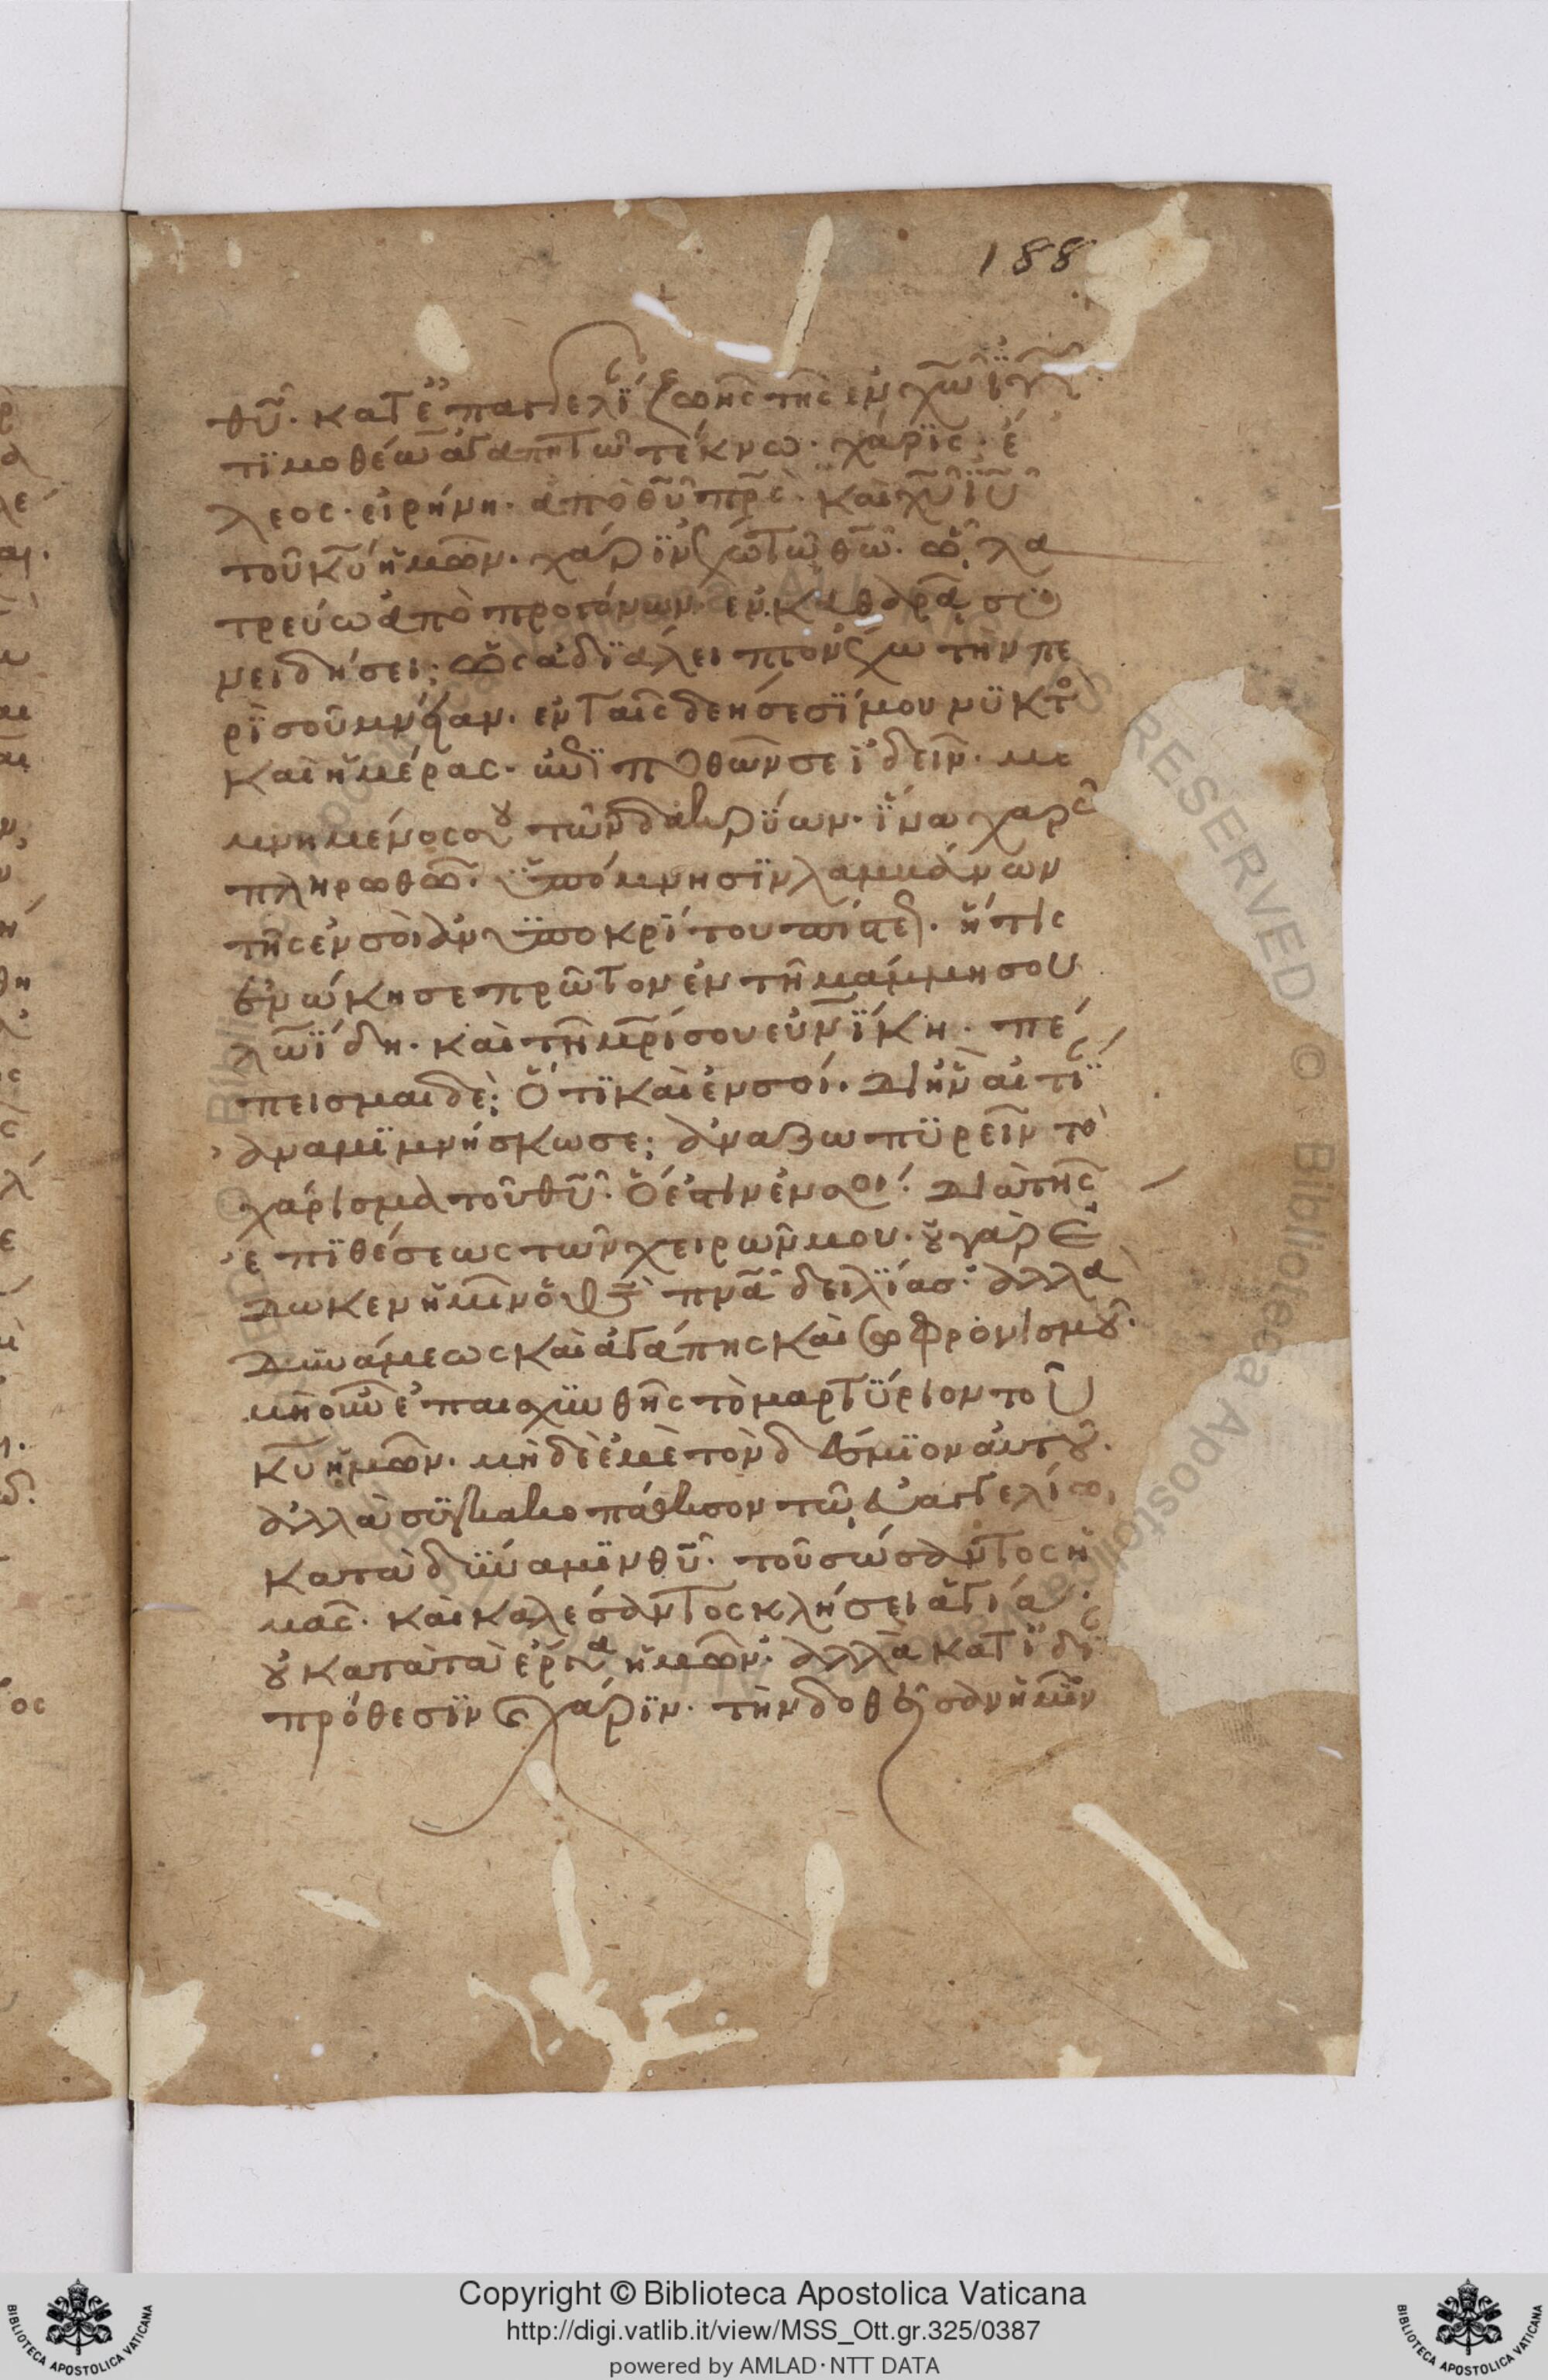 188
θῦ· κατ ἐπαγγελΐ ζωῆς τῆς ἐν χῶ ϊῦ
τϊμοθέω ἀγαπητῶ τέκνω· χάρϊς· ἔ
λεος· εἰρήνη· ἀπὸ θῦ πρς· καὶ χῦ ϊῦ
τοῦ κῦ ἡμῶν· χάρϊν ἔχω τῶ θῶ· ὧ λα
τρεύω ἀπὸ προγόνων ἐν καθαρᾶ συ
νειδήσει· ὡς ἀδϊάλειπτον ἔχω τὴν πε
ρϊ σοῦ μνείαν· ἐν ταῖς δεήσεσΐ μου νϋκτο
καὶ ἡμέρας· ἐπϊποθῶν σε ϊδεῖν· με
μνημένος σου τῶν δακρΰων· ἵνα χαρᾶς
πληρωθῶ· ὑπόμνησϊν λαμβάνων
τῆς ἐν σοὶ ἀνϋποκρΐτου πίστε· ἥτις
ἐνώκησε πρῶτον ἐν τῆ μάμμη σου
λωΐδη· καὶ τῆ μρί σου εὐνΐκη· πέ
πεισμαι δὲ· ὅτϊ καὶ ἐν σοί· δι ἣν αἰτΐ
ἀναμϊμνήσκω σε· ἀναζωπϋρεῖν τὸ
χάρισμα τοῦ θῦ· ὅ ἐστιν ἐν σοί· διὰ τῆς
ἐπϊθέσεως τῶν χειρῶν μου· οὐ γὰρ ἔ
δωκεν ἡμῖν ὁ θς πνα δειλΐασ· ἀλλὰ
δϋνάμεως καὶ ἀγάπης καὶ σωφρονισμοῦ·
μὴ οὖν ἐπαισχϋνθῆς τὸ μαρτΰριον τοῦ
κῦ ἡμῶν· μὴ δὲ ἐμὲ τὸν δέσμϊον αὐτοῦ·
ἀλλὰ σϋγκακοπάθησον τῶ εὐαγγελίω,
κατὰ δΰναμϊν θῦ· τοῦ σώσαντος ἡ
μᾶς· καὶ καλέσαντος κλήσει ἁγία·
οὐ κατὰ τὰ ἔργα ἡμῶν· ἀλλὰ κατ ϊδΐ
πρόθεσϊν καὶ χάρϊν· τὴν δοθεῖσαν ἡμῖν
Copyright © Biblioteca Apostolica Vaticana
http://digi.vatlib.it/view/MSS_Ott.gr.325/0387
powered by AMLAD·NTT DATA